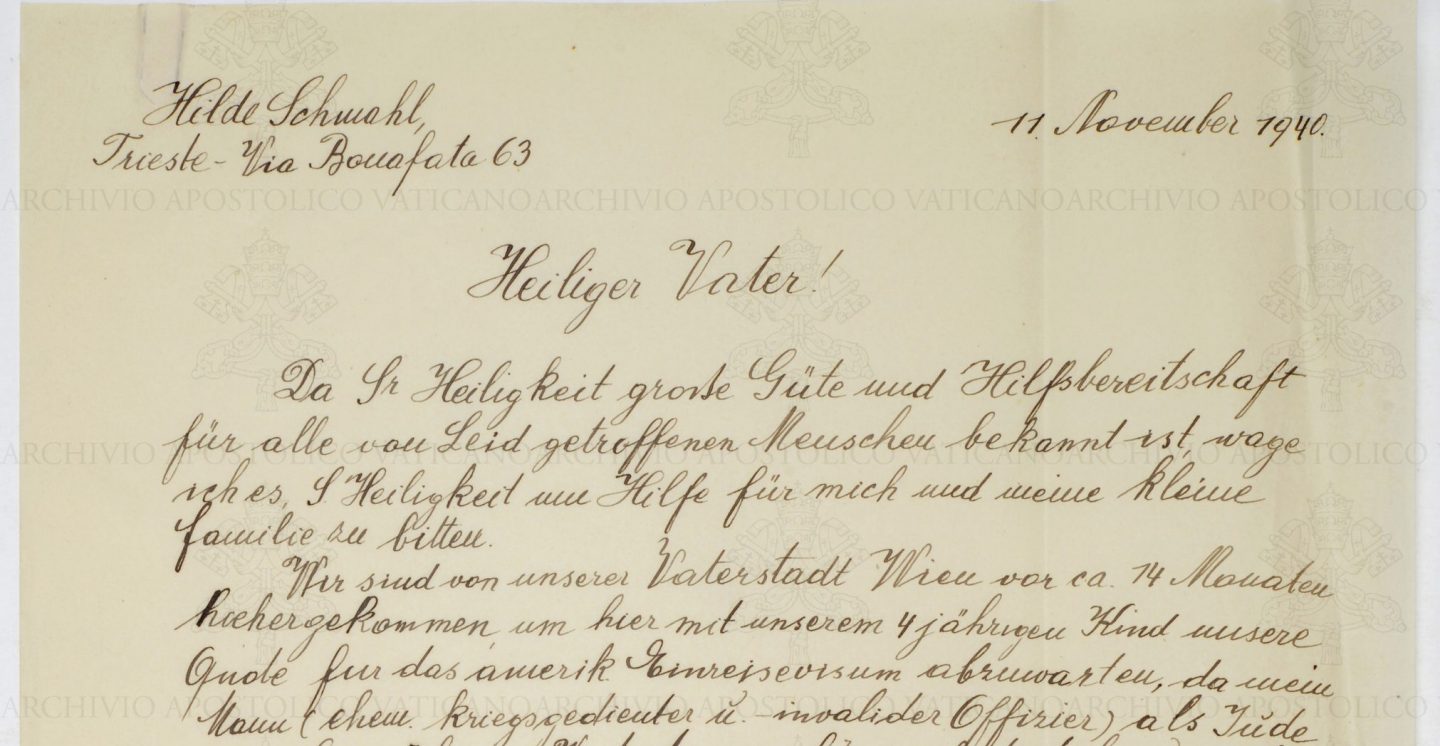 Hilde Schmahl,
11. November 1940.
Trieste - Via Bonafata 63
ARCHIVIO APOSTOLICO VATICANO ARCHIVIO APOSTOLICO VATICANO ARCHIVIO APOSTOLICO
Heiliger Vater!
Da Sr Heiligkeit große Güte und Hilfsbereitschaft
für alle von Leid getroffenen Menschen bekannt ist, wage
ARCHIVIO APOSTOLICO VATICANO ARCHIVIO APOSTOLICO VATICANO ARCHIVIO APOSTOLICO
ich es, S Heiligkeit um Hilfe für mich und meine kleine
Familie zu bitten.
Wir sind von unserer Vaterstadt Wien vor ca. 14 Monaten
hiehergekommen, um hier mit unserem 4 jährigen Kind unsere
Quote fur das amerik Einreisevisum abzuwarten, da mein
ARCHIVIO APOSTOLICO VATICANO ARCHIVIO APOSTOLICO VATICANO ARCHIVIO APOSTOLICO
Mann (ehem. kriegsgedienter u. -invalider Offizier) als Jude